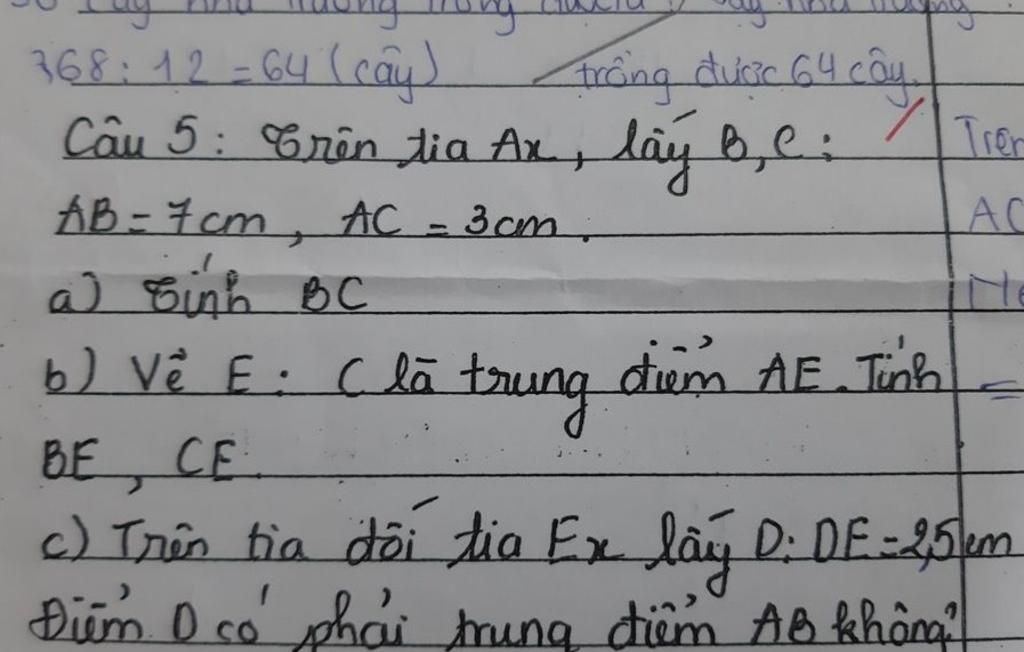 368 : 12 = 64 (cây)
trồng được 64 cây.
Câu 5 : Trên tia Ax, lấy B, C :
AB = 7 cm, AC = 3 cm.
a) Tính BC
b) Vẽ E : C là trung điểm AE. Tính
BE, CE.
c) Trên tia đối tia Ex lấy D : DE = 2,5 cm
Điểm D có phải trung điểm AB không?
AC